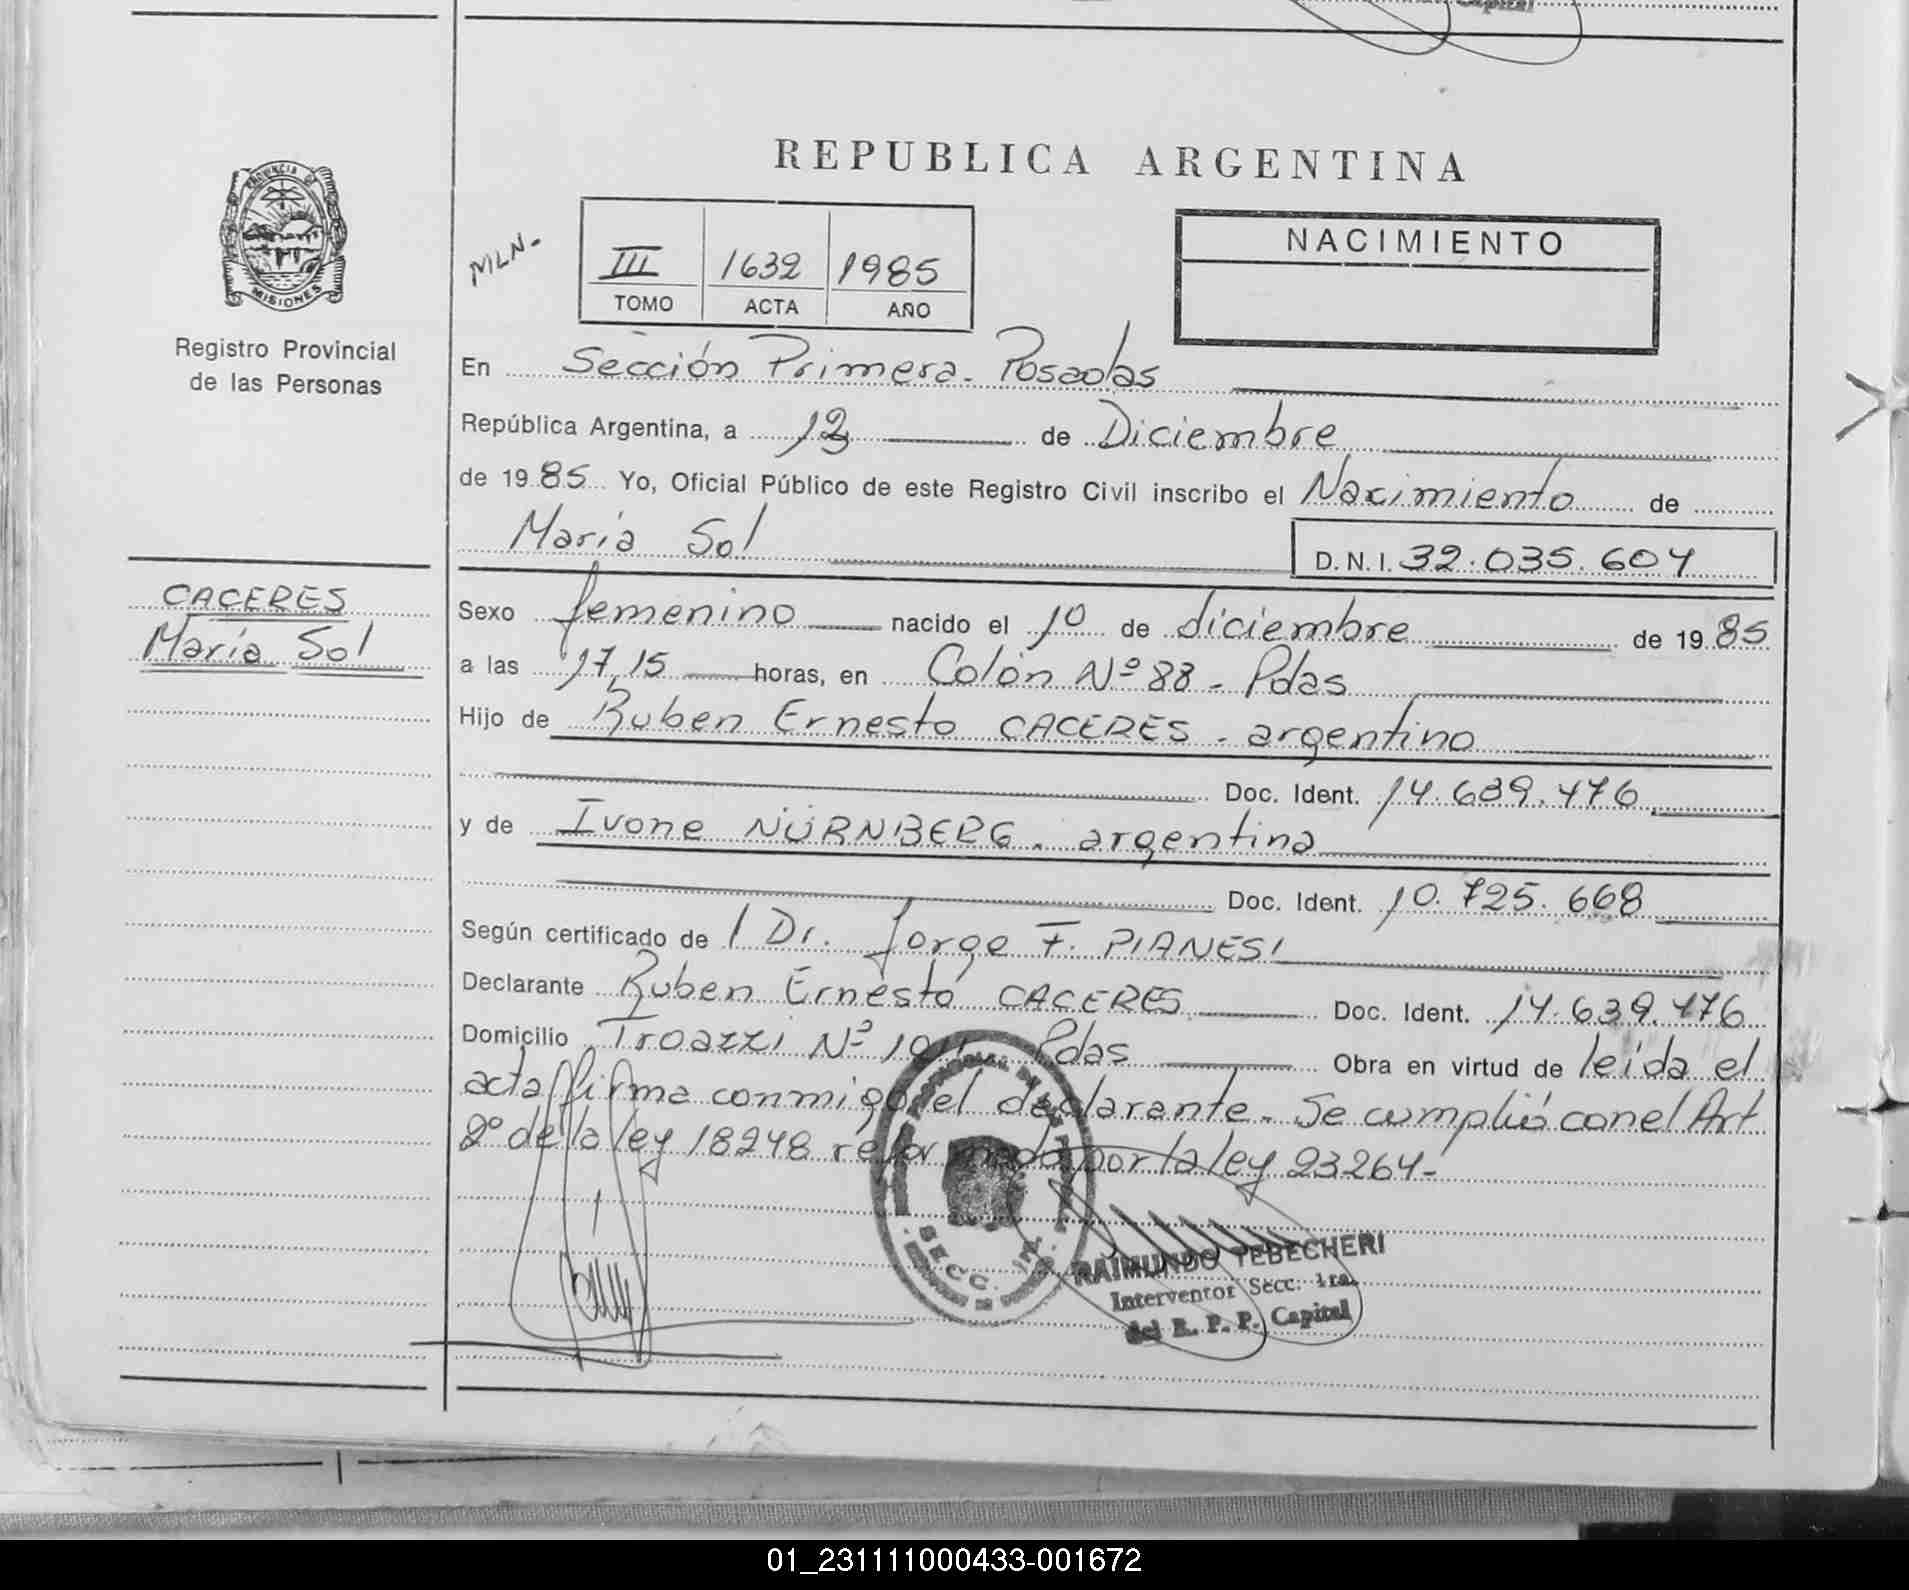 Capital
REPUBLICA ARGENTINA
PROVINCIA DE
MISIONES
Registro Provincial
de las Personas
MLN-
III 1632 1985
TOMO ACTA AÑO
NACIMIENTO
En Sección Primera - Posadas
República Argentina, a de Diciembre
de 1985 Yo, Oficial Público de este Registro Civil inscribo el Nacimiento de
María Sol
D.N.I. 32.035.604
CACERES
María Sol
Sexo femenino nacido el 10 de diciembre de 1985
a las 17,15 horas, en Colón Nº 88 - Pdas
Hijo de Ruben Ernesto CACERES - argentino
Doc. Ident. 14.639.476
y de Ivone NÜRNBERG. argentina
Doc. Ident. 10.725.668
Según certificado de Dr. Jorge F. PIANESI
Declarante Ruben Ernesto CACERES Doc. Ident. 14.639.476
Domicilio Nº Pdas Obra en virtud de leida el
acta firma conmigo el declarante. Se cumplió con el Art
2º de la ley 18248 reformado por la ley 23264-
SECC. 1RA.
RAIMUNDO TEBECHERI
Interventor Secc. 1ra.
del R. P. P. Capital
01_231111000433-001672